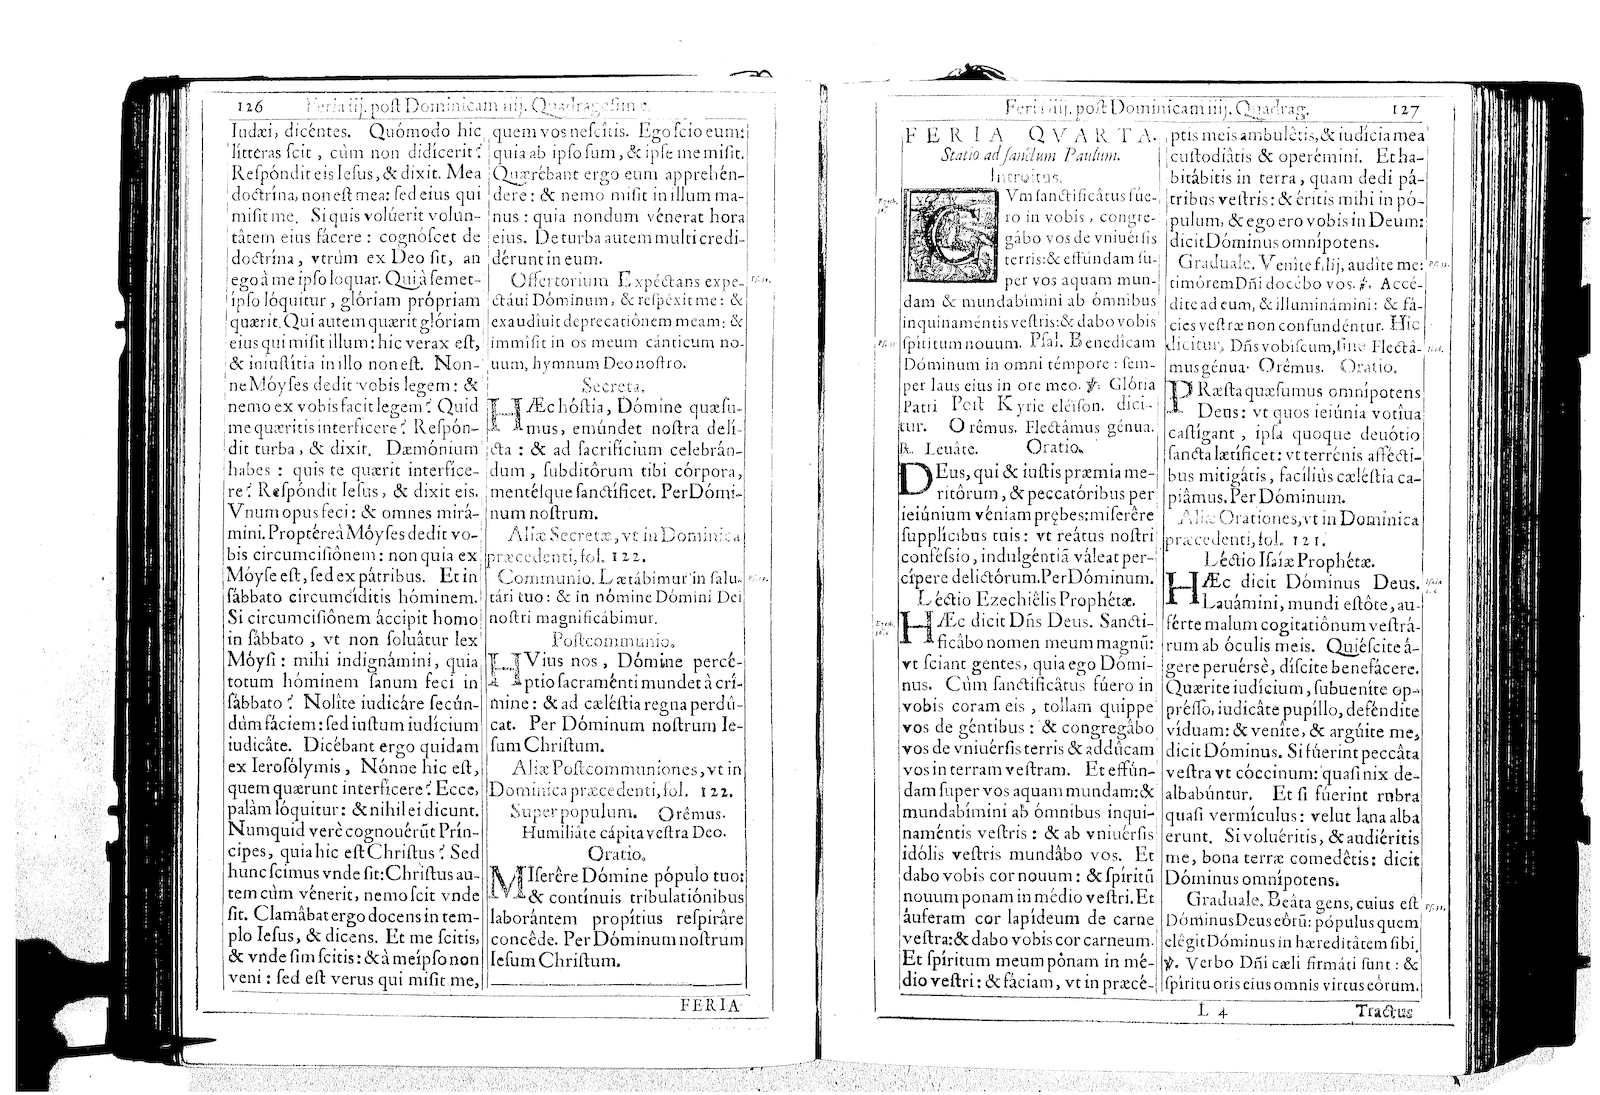 126 Feria iij. post Dominicam iiij. Quadragesimæ.
Iudæi, dicéntes. Quómodo hic
lítteras scit, cùm non didícerit?
Respóndit eis Iesus, & dixit. Mea
doctrína, non est mea: sed eius qui
misit me. Si quis volúerit volun-
tâtem eius fácere: cognóscet de
doctrína, vtrùm ex Deo sit, an
ego à me ipso loquar. Qui à semet-
ípso lóquitur, glóriam própriam
quærit. Qui autem quærit glóriam
eius qui misit illum: hic verax est,
& iniustítia in illo non est. Non-
ne Móyses dedit vobis legem: &
nemo ex vobis facit legem? Quid
me quæritis interfícere? Respón-
dit turba, & dixit. Dæmónium
habes: quis te quærit interfíce-
re? Respóndit Iesus, & dixit eis.
Vnum opus feci: & omnes mirá-
mini. Proptéreà Móyses dedit vo-
bis circumcisiônem: non quia ex
Móyse est, sed ex pátribus. Et in
sábbato circumcíditis hóminem.
Si circumcisiônem áccipit homo
in sábbato, vt non soluâtur lex
Móysi: mihi indignámini, quia
totum hóminem sanum feci in
sábbato? Nolîte iudicáre secún-
dùm fáciem: sed iustum iudícium
iudicâte. Dicébant ergo quidam
ex Ierosólymis, Nónne hic est,
quem quærunt interfícere? Ecce,
palàm lóquitur: & nihil ei dicunt.
Numquid verè cognouérũt Prín-
cipes, quia hic est Christus? Sed
hunc scimus vnde sit: Christus au-
tem cùm vénerit, nemo scit vnde
sit. Clamâbat ergo docens in tem-
plo Iesus, & dicens. Et me scitis,
& vnde sim scitis: & à meípso non
veni: sed est verus qui misit me,
quem vos nescîtis. Ego scio eum:
quia ab ipso sum, & ipse me misit.
Quærébant ergo eum apprehén-
dere: & nemo misit in illum ma-
nus: quia nondum vénerat hora
eius. De turba autem multi credi-
dérunt in eum.
Offertorium Expéctans expe-
ctáui Dóminum, & respéxit me: &
exaudiuit deprecatiônem meam: &
immísit in os meum cánticum no-
uum, hymnum Deo nostro.
Secreta.
HÆc hóstia, Dómine quæsu-
mus, emúndet nostra delí-
cta: & ad sacrifícium celebrán-
dum, subditôrum tibi córpora,
mentésque sanctíficet. Per Dómi-
num nostrum.
Aliæ Secretæ, vt in Dominica
præcedenti, fol. 122.
Communio. Lætábimur in salu-
tári tuo: & in nómine Dómini Dei
nostri magnificábimur.
Postcommunio.
HVius nos, Dómine percé-
ptio sacraménti mundet à crí-
mine: & ad cæléstia regna perdû-
cat. Per Dóminum nostrum Ie-
sum Christum.
Aliæ Postcommuniones, vt in
Dominica præcedenti, fol. 122.
Super populum. Orêmus.
Humiliâte cápita vestra Deo.
Oratio.
MIserêre Dómine pópulo tuo:
& contínuis tribulatiónibus
laborántem propítius respirâre
concêde. Per Dóminum nostrum
Iesum Christum.
FERIA
Feria iiij. post Dominicam iiij. Quadrag. 127
FERIA QVARTA.
Statio ad sanctum Paulum.
Introitus.
CVm sanctificâtus fúe-
ro in vobis, congre-
gábo vos de vniuérsis
terris: & effúndam su-
per vos aquam mun-
dam & mundabímini ab ómnibus
inquinaméntis vestris: & dabo vobis
spíritum nouum. Psal. Benedicam
Dóminum in omni témpore: sem-
per laus eius in ore meo. ℣. Glória
Patri Post Kyrie eléison. dici-
tur. Orêmus. Flectâmus génua.
℟. Leuâte. Oratio.
DEus, qui & iustis præmia me-
ritôrum, & peccatóribus per
ieiúnium véniam prębes: miserêre
supplícibus tuis: vt reátus nostri
conféssio, indulgéntiã váleat per-
cípere delictórum. Per Dóminum.
Léctio Ezechiêlis Prophétæ.
HÆc dicit Dñs Deus. Sancti-
ficâbo nomen meum magnũ:
vt sciant gentes, quia ego Dómi-
nus. Cùm sanctificâtus fúero in
vobis coram eis, tollam quippe
vos de géntibus: & congregâbo
vos de vniuérsis terris & addûcam
vos in terram vestram. Et effún-
dam super vos aquam mundam: &
mundabímini ab ómnibus inqui-
naméntis vestris: & ab vniuérsis
idólis vestris mundâbo vos. Et
dabo vobis cor nouum: & spíritũ
nouum ponam in médio vestri. Et
áuferam cor lapídeum de carne
vestra: & dabo vobis cor carneum.
Et spíritum meum pônam in mé-
dio vestri: & fáciam, vt in præcé-
ptis meis ambulêtis, & iudícia mea
custodiâtis & operémini. Et ha-
bitábitis in terra, quam dedi pá-
tribus vestris: & éritis mihi in pó-
pulum, & ego ero vobis in Deum:
dicit Dóminus omnípotens.
Graduale. Venîte fílij, audîte me:
timórem Dñi docébo vos. ℣. Accé-
dite ad eum, & illuminámini: & fá-
cies vestræ non confundéntur. Hic
dicitur, Dñs vobiscum, sine Flectâ-
mus génua. Orémus. Oratio.
PRæsta quæsumus omnípotens
Deus: vt quos ieiúnia votíua
castígant, ipsa quoque deuótio
sancta lætíficet: vt terrénis afféctí-
bus mitigátis, faciliùs cæléstia ca-
piâmus. Per Dóminum.
Aliæ Orationes, vt in Dominica
præcedenti, fol. 121.
Léctio Isaíæ Prophétæ.
HÆc dicit Dóminus Deus.
Lauámini, mundi estôte, au-
férte malum cogitatiônum vestrá-
rum ab óculis meis. Quiéscite á-
gere peruérsè, díscite benefácere.
Quærite iudícium, subueníte op-
présso, iudicâte pupíllo, deféndite
víduam: & venîte, & argúite me,
dicit Dóminus. Si fúerint peccâta
vestra vt cóccinum: quasi nix de-
albabúntur. Et si fúerint rubra
quasi vermículus: velut lana alba
erunt. Si voluéritis, & audiéritis
me, bona terræ comedêtis: dicit
Dóminus omnípotens.
Graduale. Beâta gens, cuius est
Dóminus Deus eôrũ: pópulus quem
elêgit Dóminus in hæreditâtem sibi.
℣. Verbo Dñi cæli firmáti sunt: &
spíritu oris eius omnis virtus eôrum.
L 4 Tractus